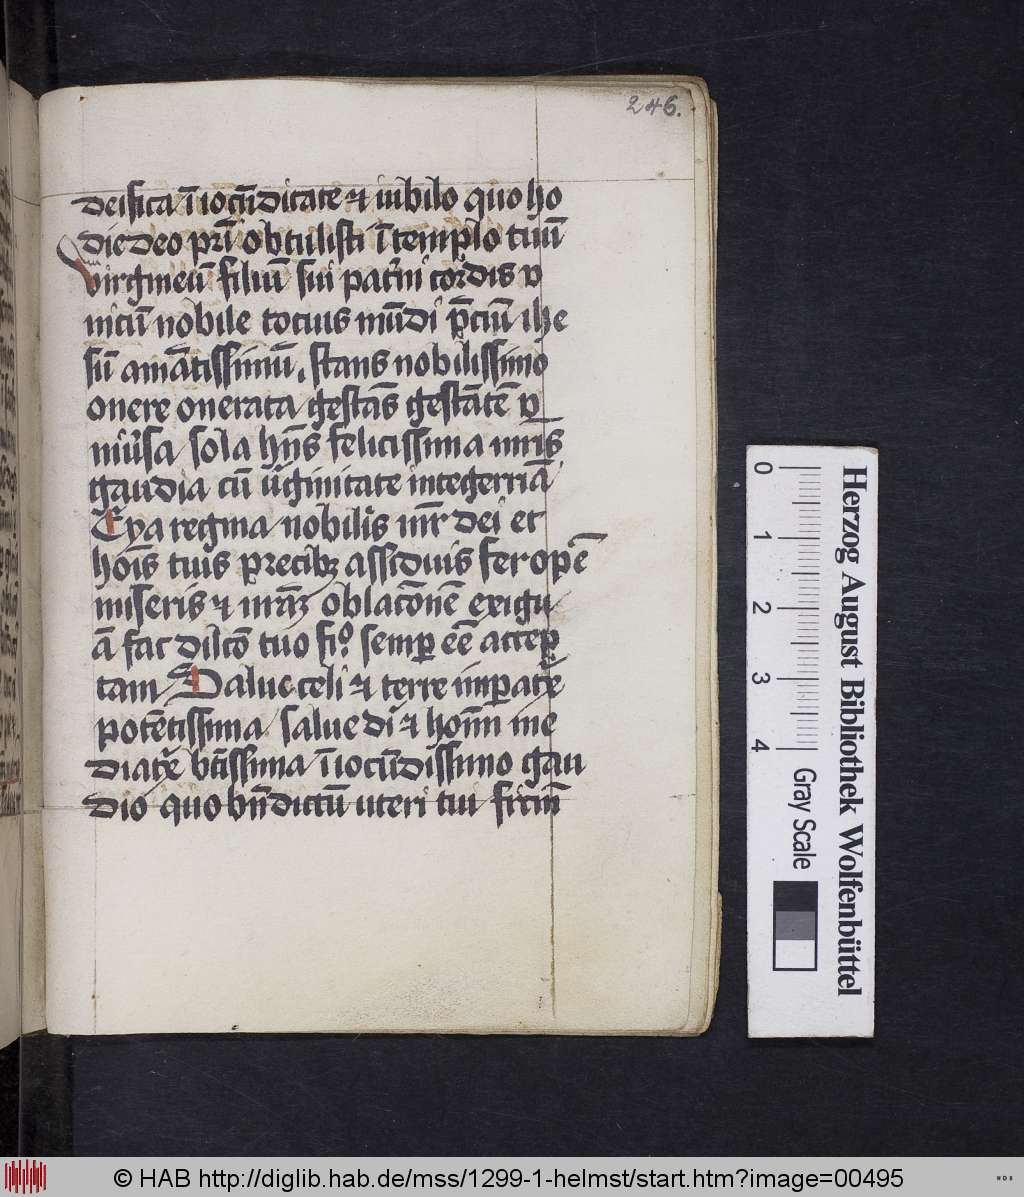 246.
deifica ī iocūditate ⁊ iubilo quo ho
die deo pr̄i obtulisti ī templo tuū
virgineū filiū sui pat̄ni cordis v
nicū nobile tocius mūdi p̄ciū ihe
sū amātissimū, stans nobilissimo
onere onerata gestās gestātē
sola hn̄s felicissima mr̄is
gaudia cū v̄ginitate integerriā
Eya regina nobilis mr̄ dei et
hoīs tuis precibꝫ assiduis fer opē
miseris ⁊ nr̄aꝫ oblacōnē exigu
ā fac dilc̄o tuo fi͛o semꝑ eē accep
tam Salue celi ⁊ terre imꝑat̄x
potētissima salue di ⁊ hoīm me
diat̄x bt̄issima ī iocūdissimo gau
dio quo bn̄dictū uteri tui fr̄cm̄
0 1 2 3 4
Gray Scale
Herzog August Bibliothek Wolfenbüttel
© HAB http://diglib.hab.de/mss/1299-1-helmst/start.htm?image=00495